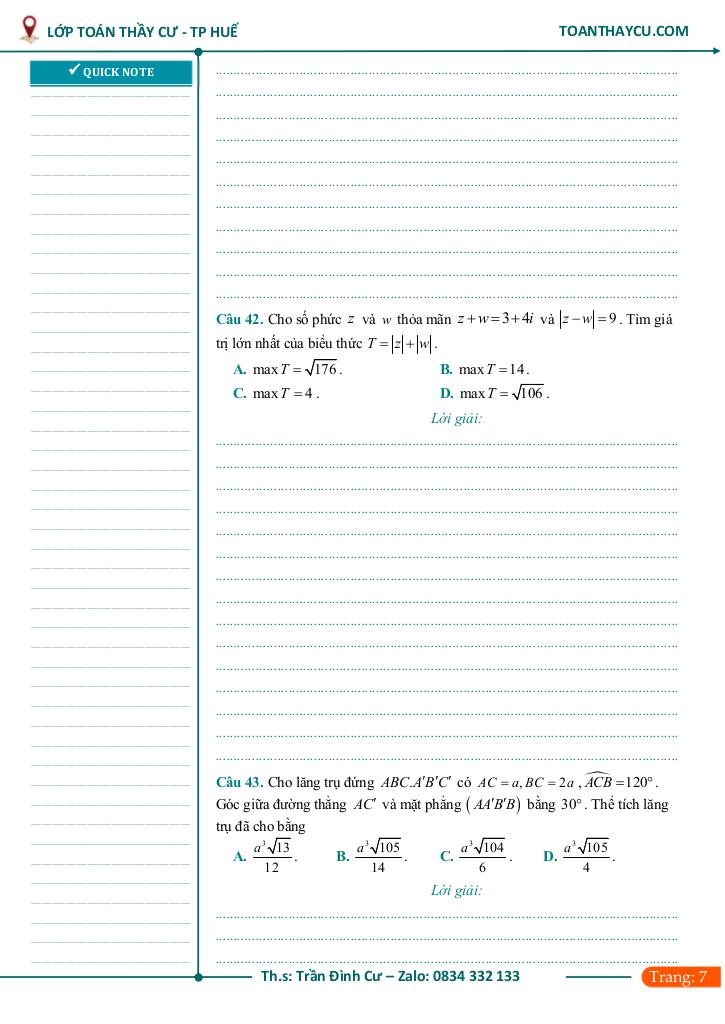 LỚP TOÁN THẦY CƯ - TP HUẾ
TOANTHAYCU.COM
✓ QUICK NOTE
Câu 42. Cho số phức z và w thỏa mãn z + w = 3 + 4i và |z − w| = 9. Tìm giá
trị lớn nhất của biểu thức T = |z| + |w|.
A. max T = √176.
B. max T = 14.
C. max T = 4.
D. max T = √106.
Lời giải:
Câu 43. Cho lăng trụ đứng ABC.A′B′C′ có AC = a, BC = 2a, ACB = 120°.
Góc giữa đường thẳng AC′ và mặt phẳng (AA′B′B) bằng 30°. Thể tích lăng
trụ đã cho bằng
A. a³√13/12. B. a³√105/14. C. a³√104/6. D. a³√105/4.
Lời giải:
Th.s: Trần Đình Cư – Zalo: 0834 332 133
Trang: 7